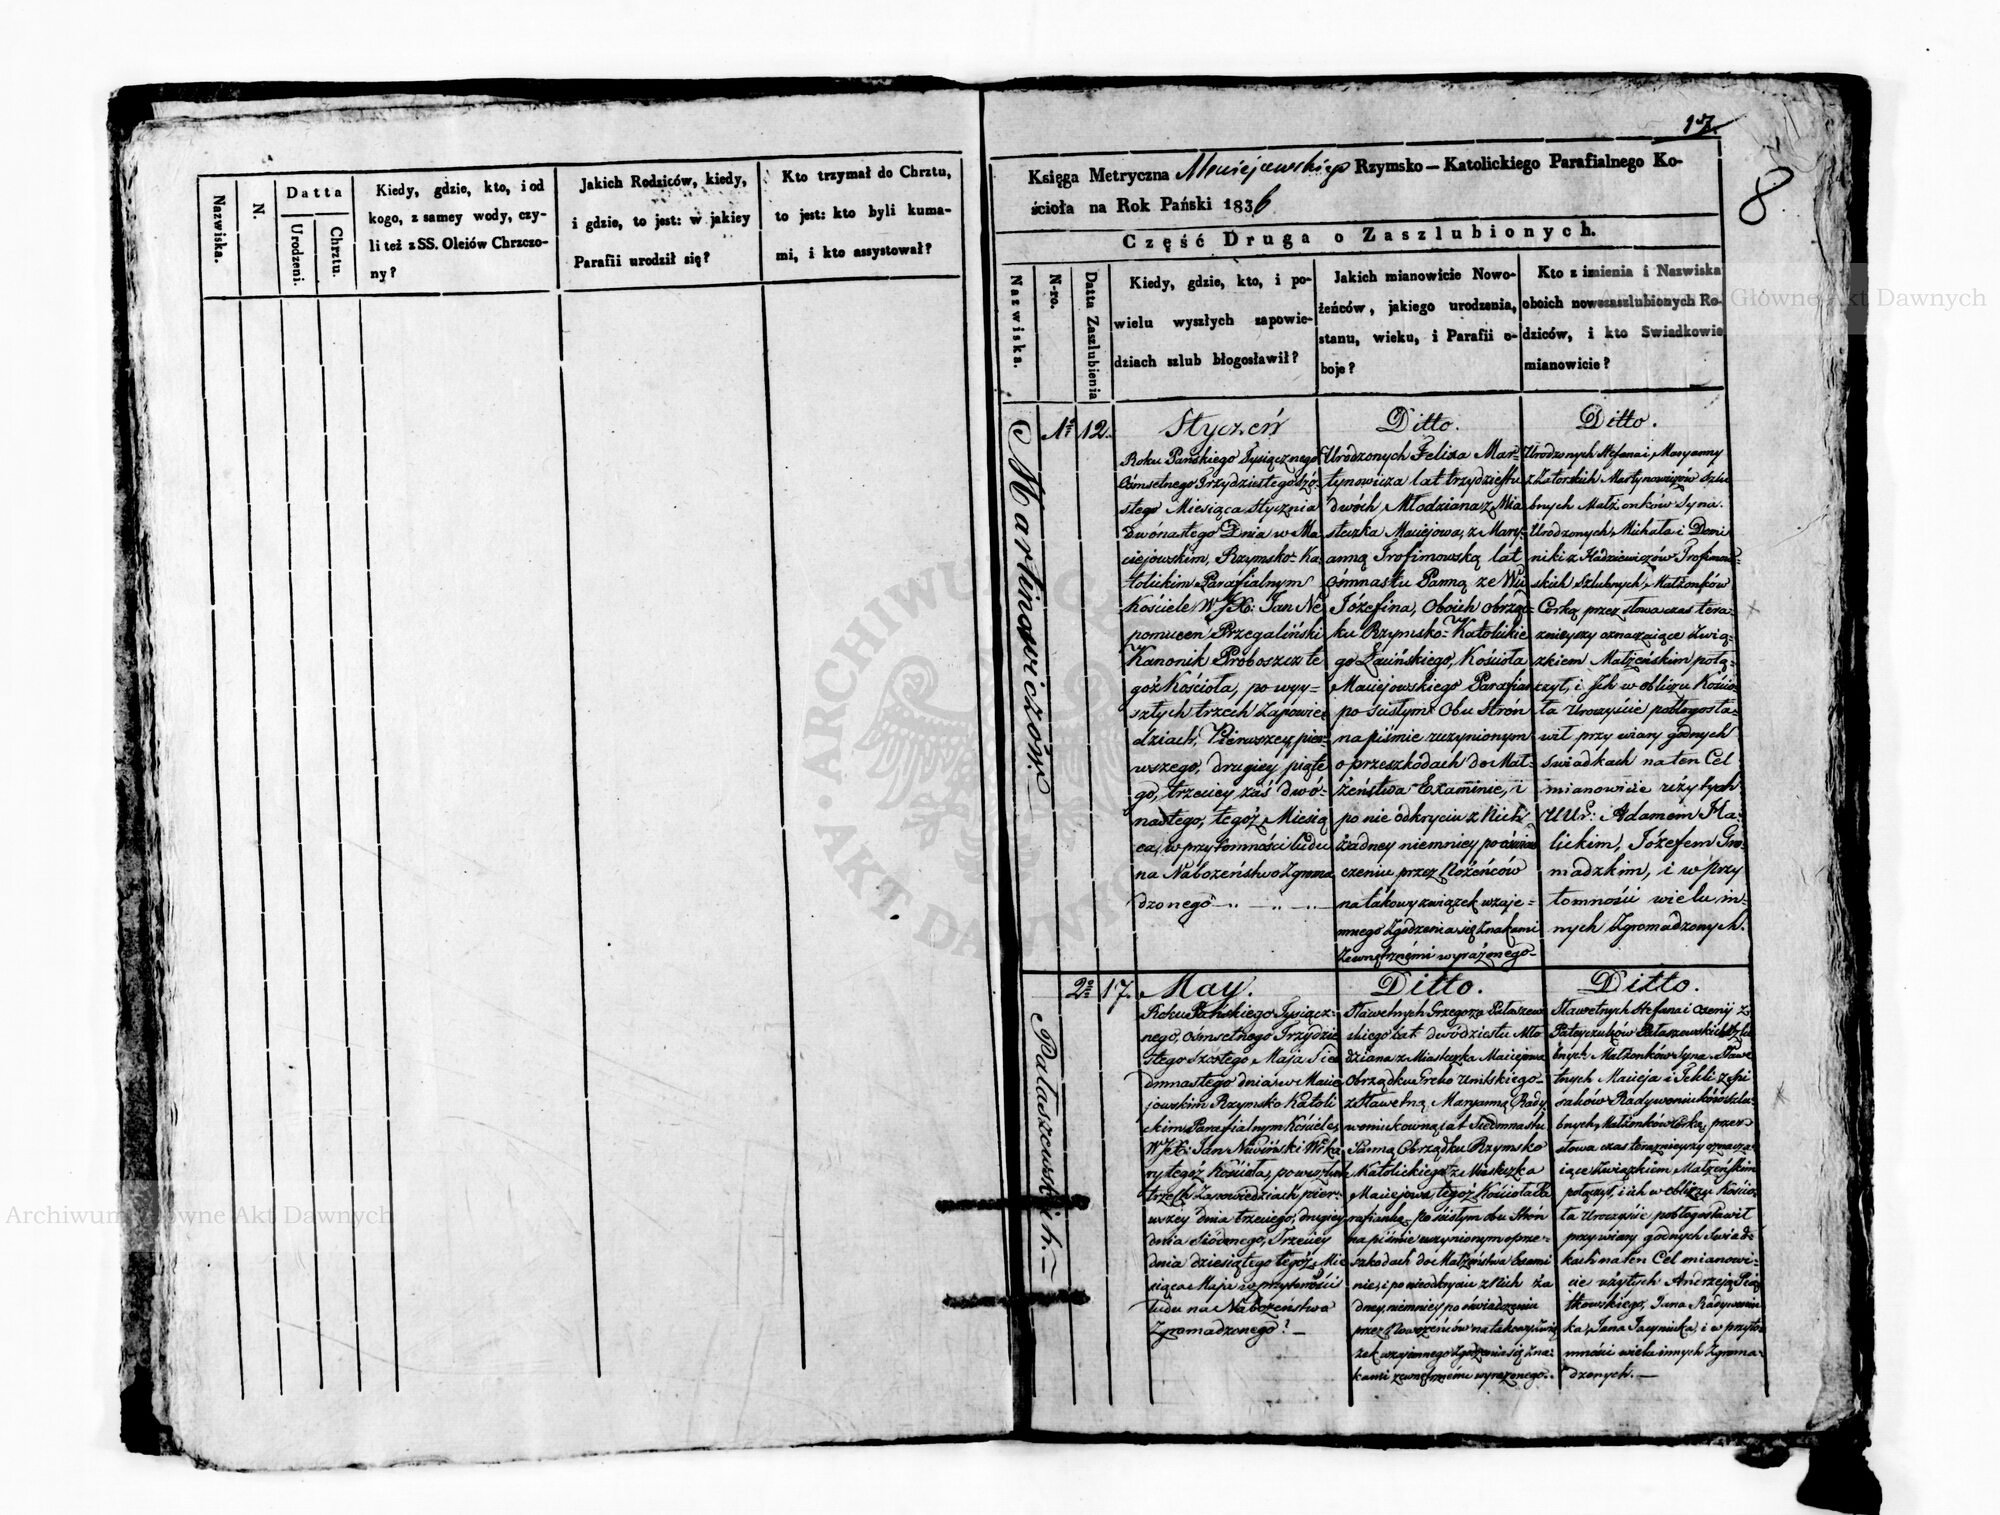 Nazwiska.
N.
Datta
Urodzeni.
Chrztu.
Kiedy, gdzie, kto, i od
kogo, z samey wody, czy-
li też z SS. Oleiów Chrzczo-
ny?
Jakich Rodziców, kiedy,
i gdzie, to jest: w jakiey
Parafii urodził się?
Kto trzymał do Chrztu,
to jest: kto byli kuma-
mi, i kto assystował?
17.
8.
Księga Metryczna Maciejewskiego Rzymsko-Katolickiego Parafialnego Ko-
ścioła na Rok Pański 1836
Część Druga o Zaszlubionych.
Nazwiska.
N-ro.
Datta Zaszlubienia
Kiedy, gdzie, kto, i po-
wielu wyszłych zapowie-
dziach szlub błogosławił?
Jakich mianowicie Nowo-
żeńców, jakiego urodzenia,
stanu, wieku, i Parafii o-
boje?
Kto z imienia i Nazwiska
oboich nowozaszlubionych Ro-
dziców, i kto Swiadkowie
mianowicie?
Martinowiczów.
12.
Styczeń
Roku Pańskiego Tysiącznego
Ośmsetnego Trzydziestego Szó-
stego Miesiąca Stycznia
Dwónastego Dnia w Ma
ciejowskim, Rzymsko-Ka-
tolickim Parafialnym
Kościele WJX: Jan Ne
pomucen Przegaliński
Kanonik Proboszcz te
goż Kościoła, po wy-
szłych trzech Zapowie
dziach, Pierwszey pier-
wszego, drugiey piąte
go, trzeciey zaś dwó-
nastego, tegoż Miesią
ca, w przytomności ludu
na Nabożeństwo Zgroma
dzonego
Ditto.
Urodzonych Felixa Mar-
tynowicza lat trzydziestu
dwóch Młodziana z Mia
steczka Maciejowa, z Mary-
anną Trofimowską lat
Ośmnastu Panną ze Wsi
Józefina, Oboich obrząd-
ku Rzymsko-Katolickie
go Łacińskiego, Kościoła
Maciejowskiego Parafian
po ścisłym Obu Strón
na piśmie uczynionym
o przeszkodach do Mał-
żeństwa Examinie, i
po nie odkryciu z Nich
żadney niemniey po oświad
czeniu przez Nożeńców
na takowy związek wzaje-
mnego Zgodzenia się Znakami
Zewnętrznemi wyrażonego-
Ditto.
Urodzonych Stefana i Maryanny
z Zatorskich Martynowiczów Szlu
bnych Małżonków Syna.
Urodzonych Michała i Domi
niki z Hadziewiczów Trofimow-
skich Szlubnych Małżonków
Corką przez słowa czas tera-
znieyszy oznaczaiące Zwią-
zkiem Małżeńskim połą-
czył, i Ich w obliczu Kościo-
ła Uroczyście pobłogosła-
wił przy wiary godnych
świadkach na ten Cel
mianowicie użytych
UUr: Adamem
lickim, Józefem Gro-
madzkim, i w przy
tomności wielu in-
nych Zgromadzonych.
Pałaszewskich.
17.
May.
Roku Pańskiego Tysiącz-
nego, Ośmsetnego Trzydzie
stego Szóstego Maja Sie
dmnastego dnia w Macie
jowskim Rzymsko Katoli
ckim Parafialnym Kościele,
WJX: Jan Wika
ry tegoż Kościoła, po wyszłych
trzech Zapowiedziach pier-
wszey dnia trzeciego, drugiey
dnia Siódmego, Trzeciey
dnia dziesiątego tegoż Mie
siąca Maja w przytomności
ludu na Nabożeństwo
Zgromadzonego!-
Ditto.
Sławetnych Grzegorza Pałaszew
skiego lat dwódziestu Mło
dziana z Miasteczka Maciejowa
Obrządku Greko Unitskiego-
z Sławetną Maryanną Rady
woniukowną lat Siedmnastu
Panną Obrządku Rzymsko
Katolickiego z Miasteczka
Maciejowa, tegoż Kościoła Pa
rafianką, po ścisłym obu Strón
na piśmie uczynionym o prze-
szkodach do Małżeństwa Exami
nie, i po nieodkryciu z Nich ża
dney, niemniey po oświadczeniu
przez Nowożeńców na takowy zwią
zek wzajemnego Zgodzenia się Zna-
kami zewnętrznemi wyrażonego.
Ditto.
Sławetnych Stefana i z
Pałaszewskich Szlu
bnych Małżonków Syna. Sławe
tnych Macieja i Tekli z
Radywoniuków Szlu-
bnych Małżonków Corką, przez
słowa czas teraznieyszy oznacza
iące Związkiem Małżeńskim
połączył, i ich w obliczu Kościo-
ła Uroczyście pobłogosławił
przy wiary godnych Świad-
kach na ten Cel mianowi-
cie użytych Andrzeja Pią
tkowskiego, Jana Radywoniu
ka, Jana i w przyto-
mności wielu innych Zgroma-
dzonych.-